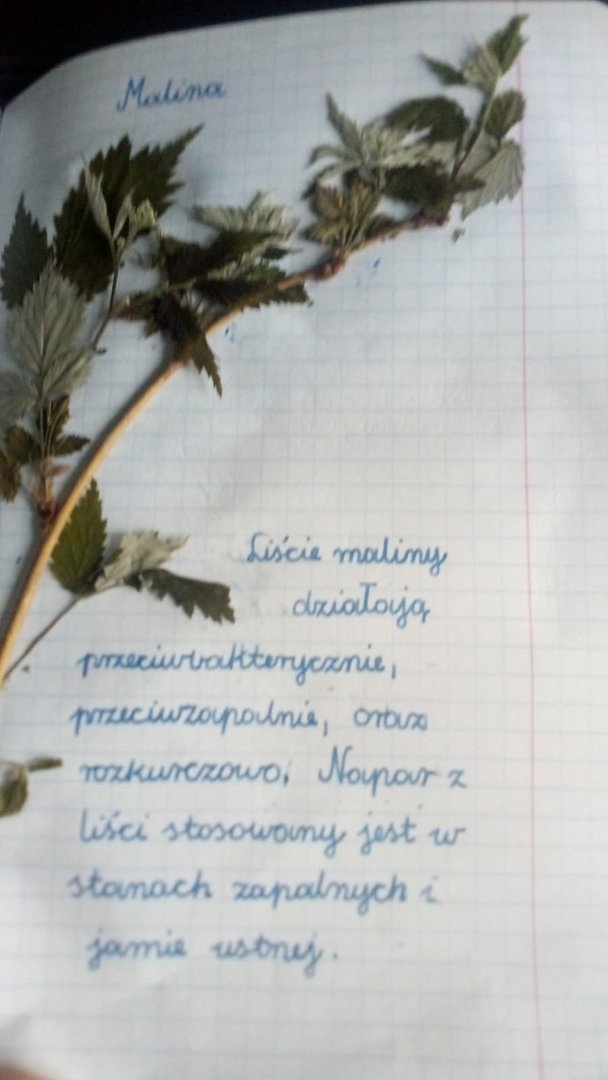 Malina
Liście maliny
działają
przeciwbakterycznie,
przeciwzapalnie, oraz
rozkurczowo. Napar z
liści stosowany jest w
stanach zapalnych i
jamie ustnej.